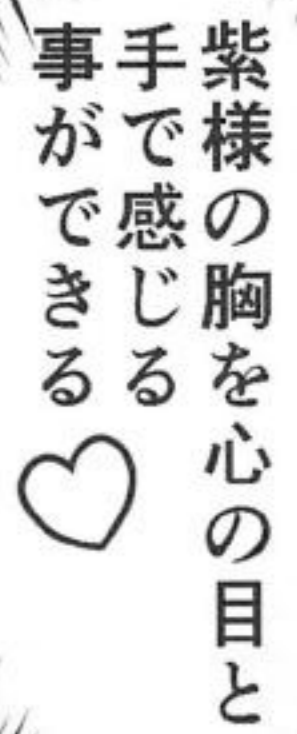 紫様の胸を心の目と
手で感じる
事ができる♡